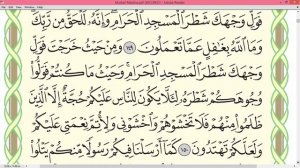 Mushaf Madina.pdf (SECURED) - Adobe Reader
فَوَلِّ وَجْهَكَ شَطْرَ ٱلْمَسْجِدِ ٱلْحَرَامِ وَإِنَّهُۥ لَلْحَقُّ مِن رَّبِّكَ
وَمَا ٱللَّهُ بِغَٰفِلٍ عَمَّا تَعْمَلُونَ ١٤٩ وَمِنْ حَيْثُ خَرَجْتَ فَوَلِّ
وَجْهَكَ شَطْرَ ٱلْمَسْجِدِ ٱلْحَرَامِ وَحَيْثُ مَا كُنتُمْ فَوَلُّوا۟
وُجُوهَكُمْ شَطْرَهُۥ لِئَلَّا يَكُونَ لِلنَّاسِ عَلَيْكُمْ حُجَّةٌ إِلَّا ٱلَّذِينَ
ظَلَمُوا۟ مِنْهُمْ فَلَا تَخْشَوْهُمْ وَٱخْشَوْنِى وَلِأُتِمَّ نِعْمَتِى عَلَيْكُمْ
وَلَعَلَّكُمْ تَهْتَدُونَ ١٥٠ كَمَآ أَرْسَلْنَا فِيكُمْ رَسُولًا مِّنكُمْ يَتْلُوا۟